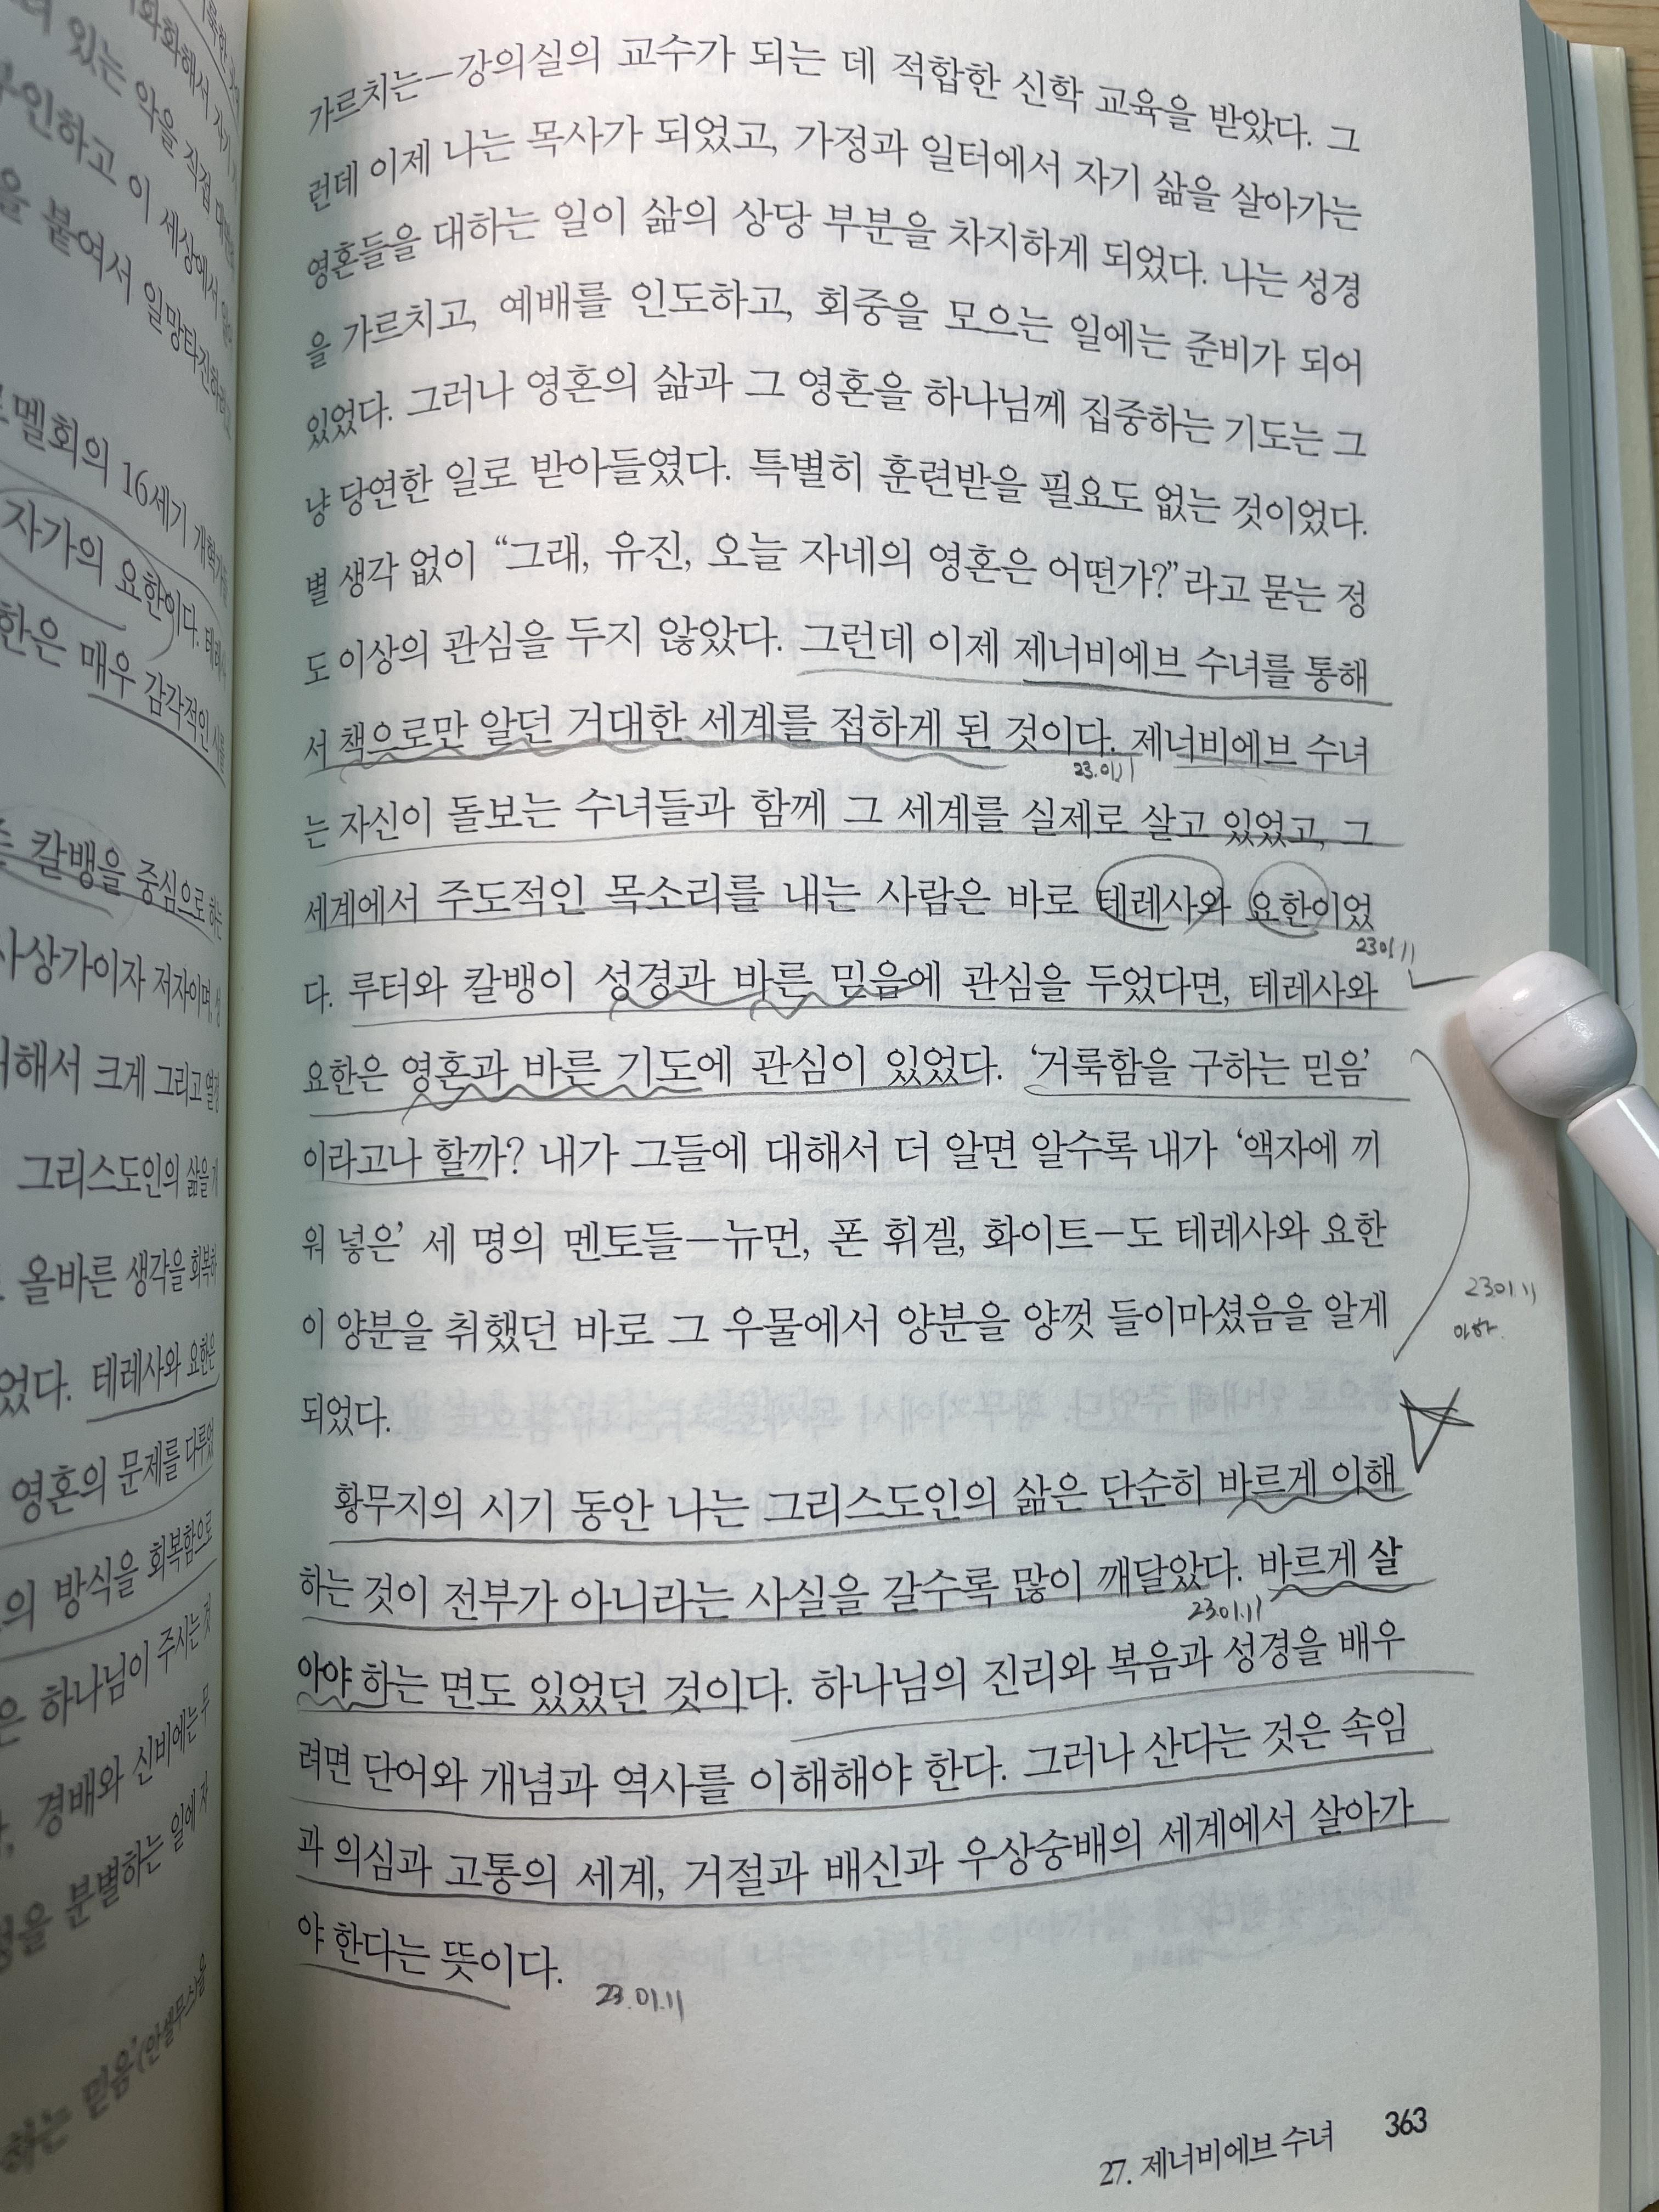 멜회의 16세기
자가의 요한이다.
한은 매우 감각적인
칼뱅을 중심으로 하는
사상가이자 저자이며,
해서 크게 그리고
그리스도인의 삶을
올바른 생각을
었다. 테레사와 요한은
영혼의 문제를
의 방식을 회복함으로
은 하나님이 주시는
경배와 신비에는
을 분별하는 일에
하는 믿음’(안셀무스)을
가르치는—강의실의 교수가 되는 데 적합한 신학 교육을 받았다. 그
런데 이제 나는 목사가 되었고, 가정과 일터에서 자기 삶을 살아가는
영혼들을 대하는 일이 삶의 상당 부분을 차지하게 되었다. 나는 성경
을 가르치고, 예배를 인도하고, 회중을 모으는 일에는 준비가 되어
있었다. 그러나 영혼의 삶과 그 영혼을 하나님께 집중하는 기도는 그
냥 당연한 일로 받아들였다. 특별히 훈련받을 필요도 없는 것이었다.
별 생각 없이 “그래, 유진, 오늘 자네의 영혼은 어떤가?”라고 묻는 정
도 이상의 관심을 두지 않았다. 그런데 이제 제너비에브 수녀를 통해
서 책으로만 알던 거대한 세계를 접하게 된 것이다. 제너비에브 수녀
23.01.11
는 자신이 돌보는 수녀들과 함께 그 세계를 실제로 살고 있었고, 그
세계에서 주도적인 목소리를 내는 사람은 바로 테레사와 요한이었
23.01.11
다. 루터와 칼뱅이 성경과 바른 믿음에 관심을 두었다면, 테레사와
요한은 영혼과 바른 기도에 관심이 있었다. ‘거룩함을 구하는 믿음’
이라고나 할까? 내가 그들에 대해서 더 알면 알수록 내가 ‘액자에 끼
워 넣은’ 세 명의 멘토들—뉴먼, 폰 휘겔, 화이트—도 테레사와 요한
이 양분을 취했던 바로 그 우물에서 양분을 양껏 들이마셨음을 알게
23.01.11
아하.
되었다.
황무지의 시기 동안 나는 그리스도인의 삶은 단순히 바르게 이해
하는 것이 전부가 아니라는 사실을 갈수록 많이 깨달았다. 바르게 살
23.01.11
아야 하는 면도 있었던 것이다. 하나님의 진리와 복음과 성경을 배우
려면 단어와 개념과 역사를 이해해야 한다. 그러나 산다는 것은 속임
과 의심과 고통의 세계, 거절과 배신과 우상숭배의 세계에서 살아가
야 한다는 뜻이다.
23.01.11
27. 제너비에브 수녀 363